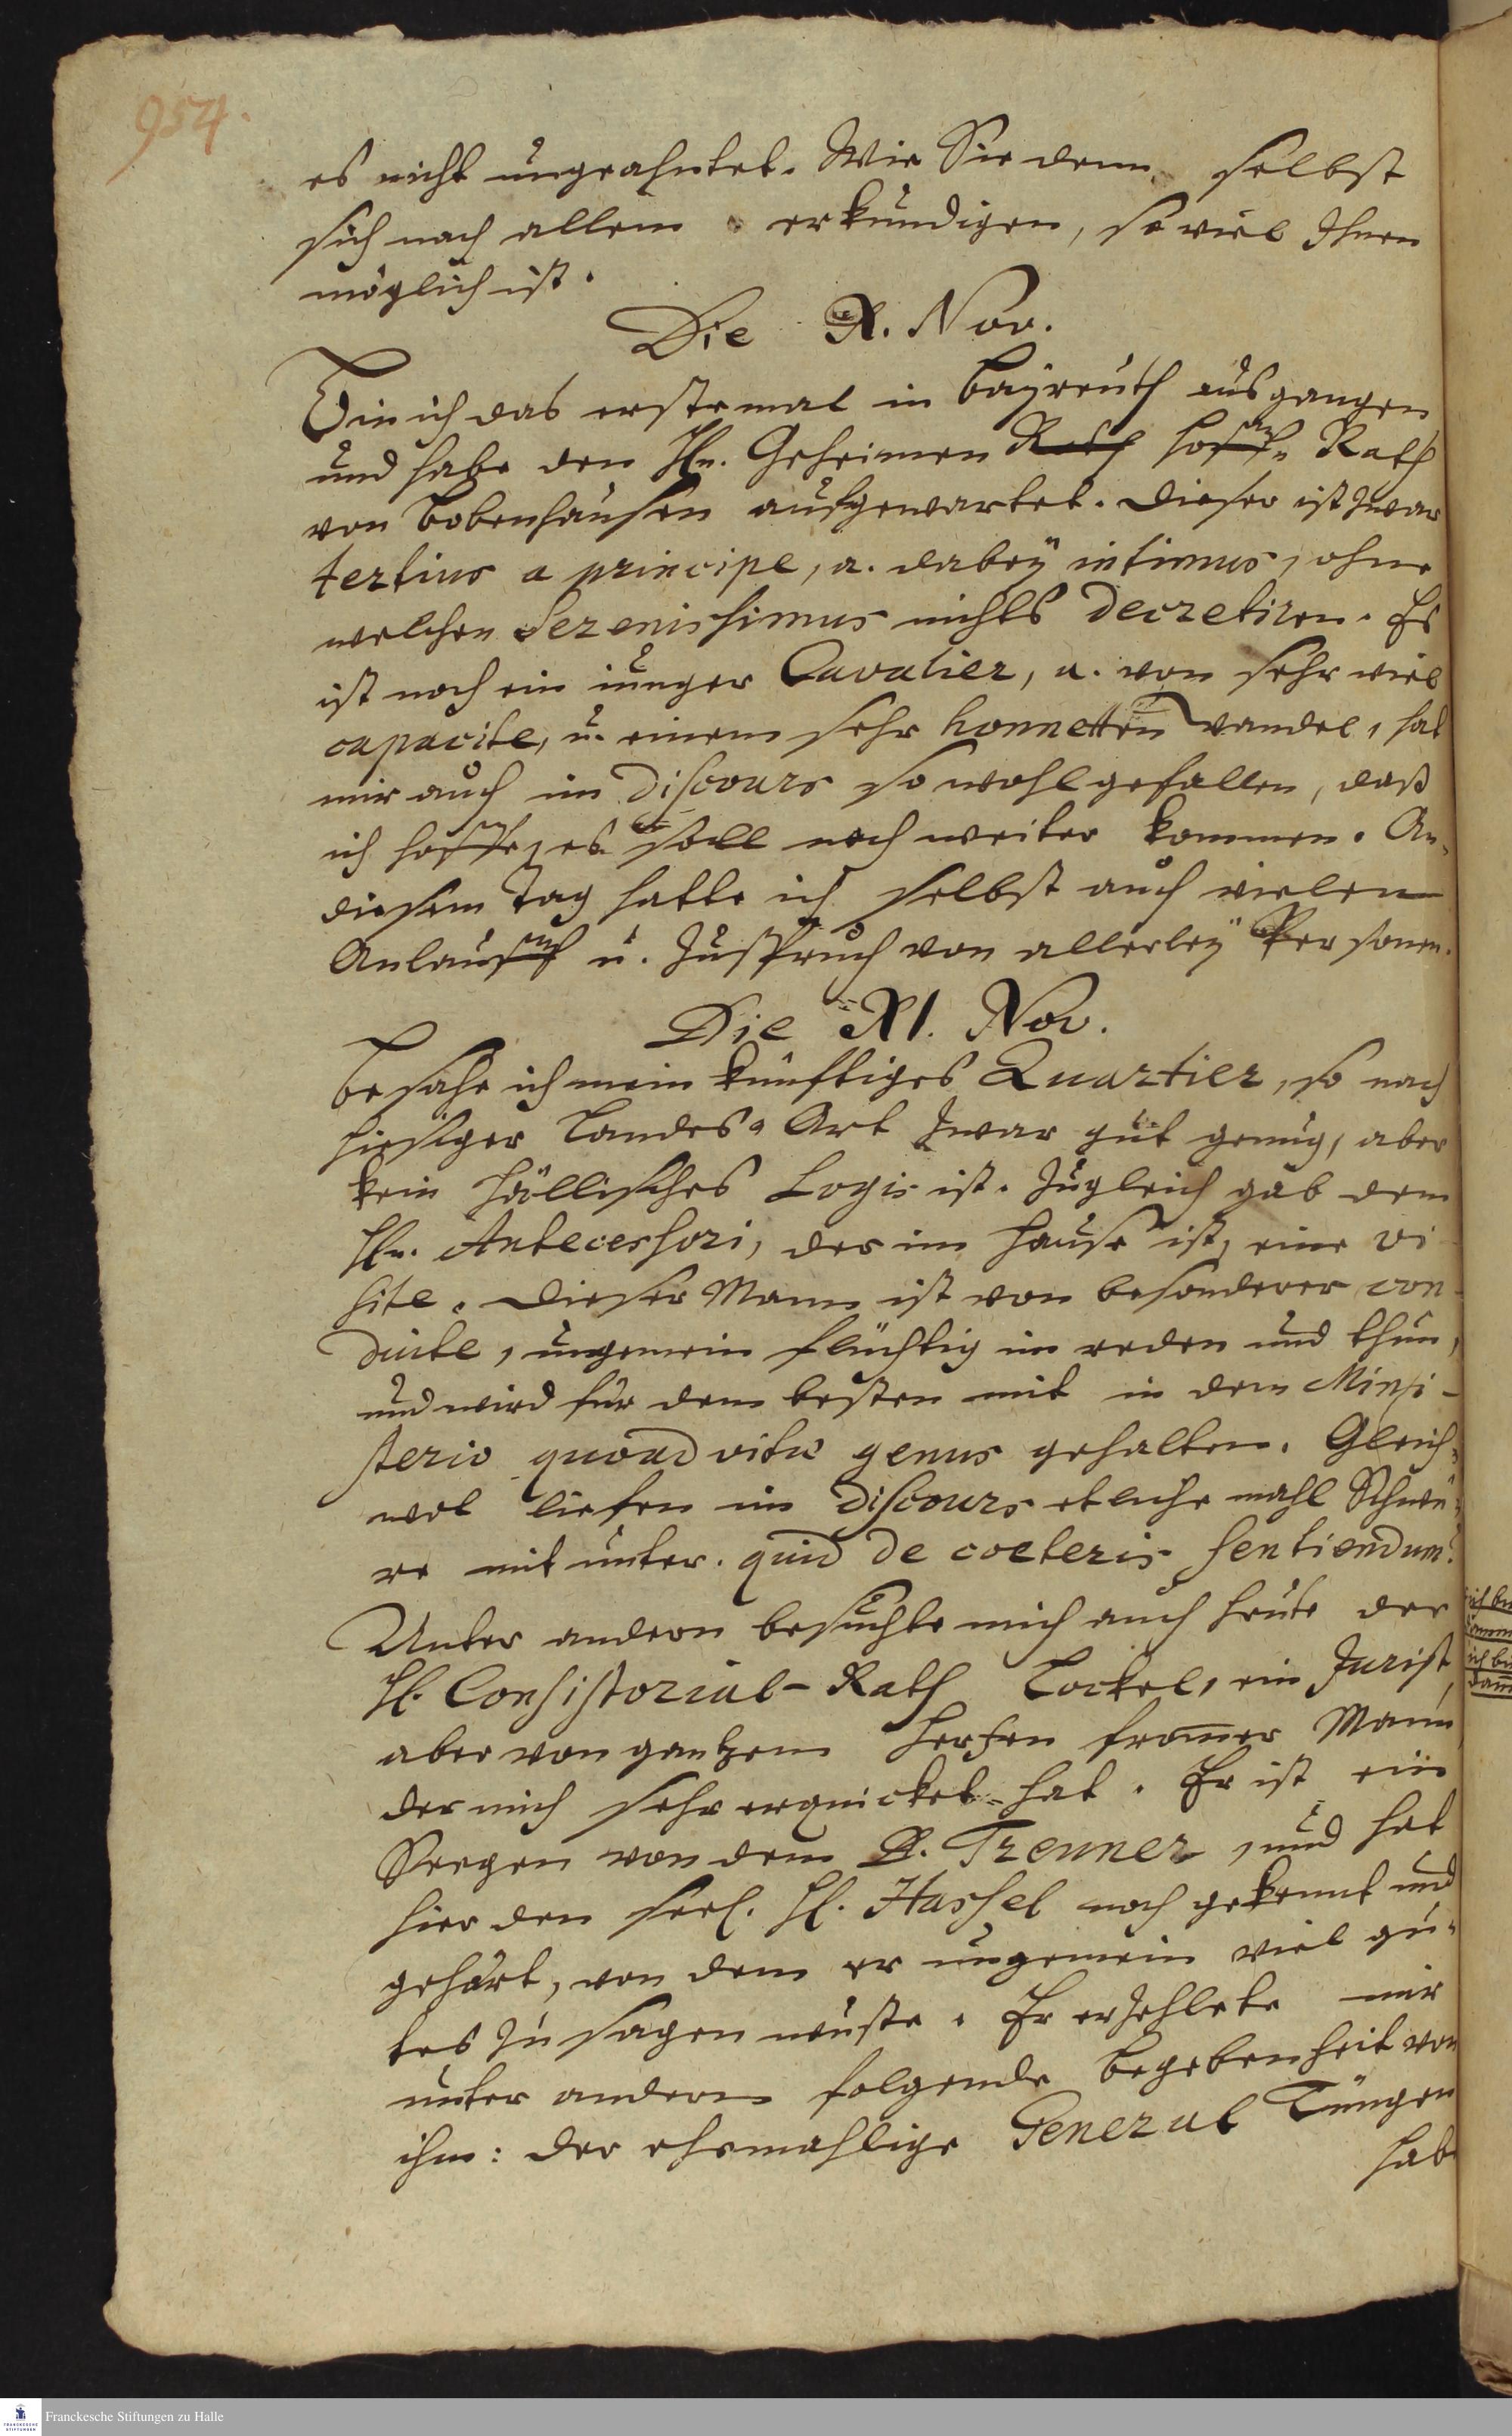 954.
es nicht ungeahntet. Wie Sie denn selbst
sich nach allem erkundigen, so viel Ihnen
möglich ist.
Die X. Nov.
Bin ich das erstemal in Bayreuth ausgangen
und habe den Hn. Geheimen Rath Hoff- Rath
von Bobenhausen aufgewartet. Dieser ist zwar
tertius a principe, a. dabey intimus, ohne
welchen Serenissimus nichts decretiren. Es
ist noch ein iunger Cavalier, u. von sehr viel
capacite, u. einem sehr honnetten wandel, hat
mir auch im discours so wohl gefallen, daß
ich hoffe, es soll noch weiter kommen. An
diesem Tag hatte ich selbst auch vielen
Anlauff u. Zuspruch von allerley Personen.
Die XI. Nov.
Besahe ich mein künftiges Quartier, so nach
hiesiger Landes-Art zwar gut genug, aber
kein Hällisches Logis ist. Zugleich gab dem
Hn. Antecessori, der im Hause ist, eine vi-
site. Dieser Mann ist von besonderer con-
duite, ungemein flüchtig im reden und thun,
und wird für dem besten mit in dem Mini-
sterio quoad vitæ genus gehalten. Gleich-
wol liefen im discours etliche mahl Schwü-
re mit unter. quid de coeteris sentiendum?
Unter andern besuchte mich auch heute der
H. Consistorial-Rath Lockel, ein Jurist,
aber von gantzem Herzen fromer Mann
der mich sehr erquicket hat. Er ist ein
Seegen von dem D. Treuner, und hat
hier den seel. H. Hassel noch gekennt und
gehört, von dem er ungemein viel gu-
tes zu sagen wuste. Er erzehlete mir
unter andern folgende Begebenheit von
ihm: der ehemahlige General Tüngen
hab
Franckesche Stiftungen zu Halle